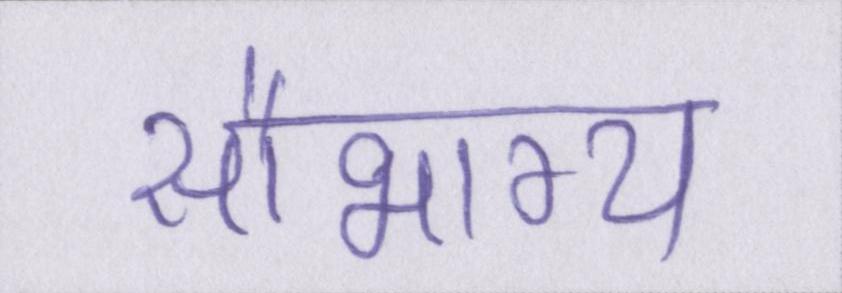 सौभाग्य